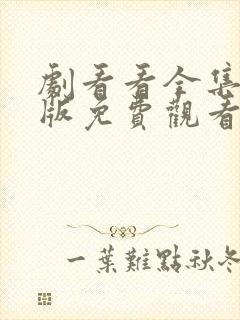 劇看看全集
版免費觀看
一葉難點秋冬